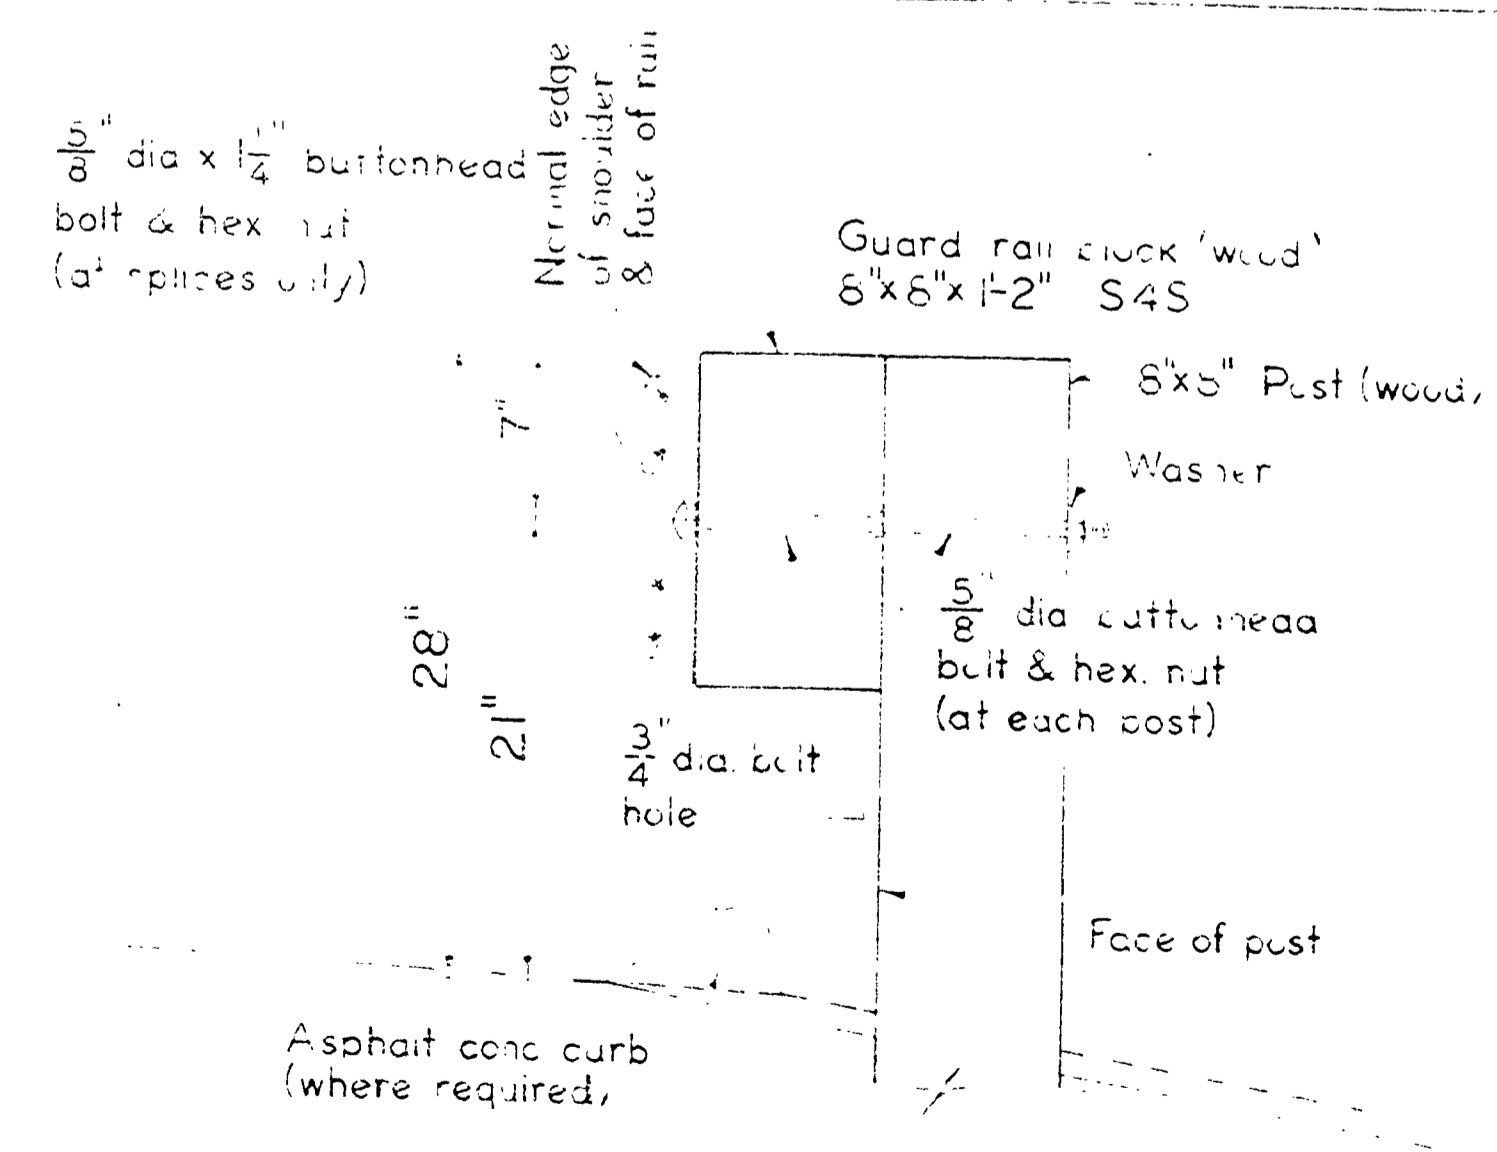 5/8" dia x 1 1/4" buttonhead
bolt & hex nut
(at splices only)
Normal edge
of shoulder
& face of rail
Guard rail block 'wood'
8"x8"x 1'-2" S4S
8"x8" Post (wood)
Washer
7"
28"
21"
5/8" dia buttonhead
bolt & hex. nut
(at each post)
3/4" dia. bolt
hole
Face of post
Asphalt conc curb
(where required)